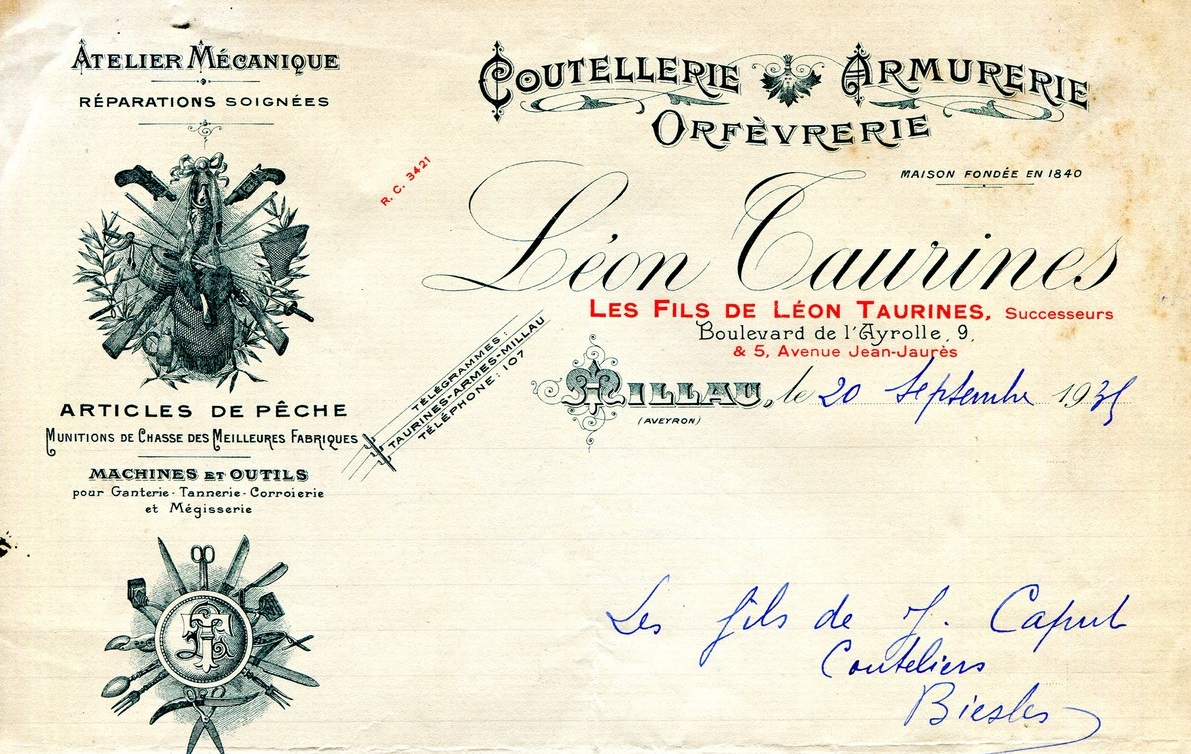 ATELIER MÉCANIQUE
RÉPARATIONS SOIGNÉES
ARTICLES DE PÊCHE
MUNITIONS DE CHASSE DES MEILLEURES FABRIQUES
MACHINES ET OUTILS
pour Ganterie - Tannerie - Corroierie
et Mégisserie
R. C. 3421
COUTELLERIE ARMURERIE
ORFÈVRERIE
MAISON FONDÉE EN 1840
Léon Taurines
LES FILS DE LÉON TAURINES, Successeurs
Boulevard de l'Ayrolle, 9,
& 5, Avenue Jean-Jaurès
TÉLÉGRAMMES:
TAURINES-ARMES-MILLAU
TÉLÉPHONE: 107
MILLAU, le 20 Septembre
(AVEYRON)
Les fils de J. Caput
Couteliers
Biesles